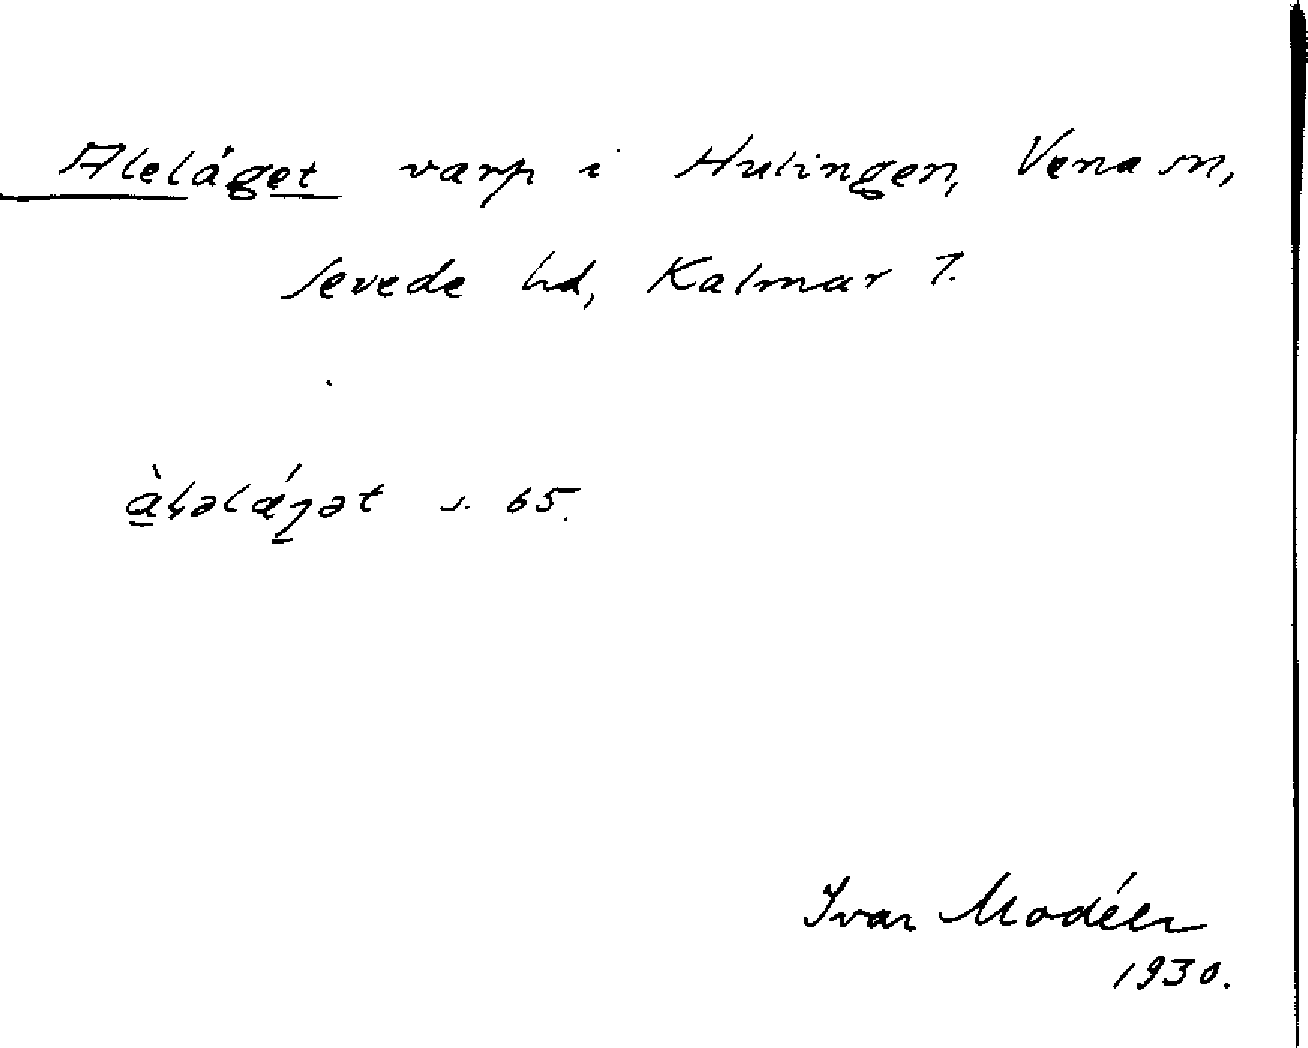 Aleläget varp i Hulingen, Vena sn,
Sevede hd, Kalmar l.
àlǝlǽgǝt s. 65.
Ivar Modéer
1930.